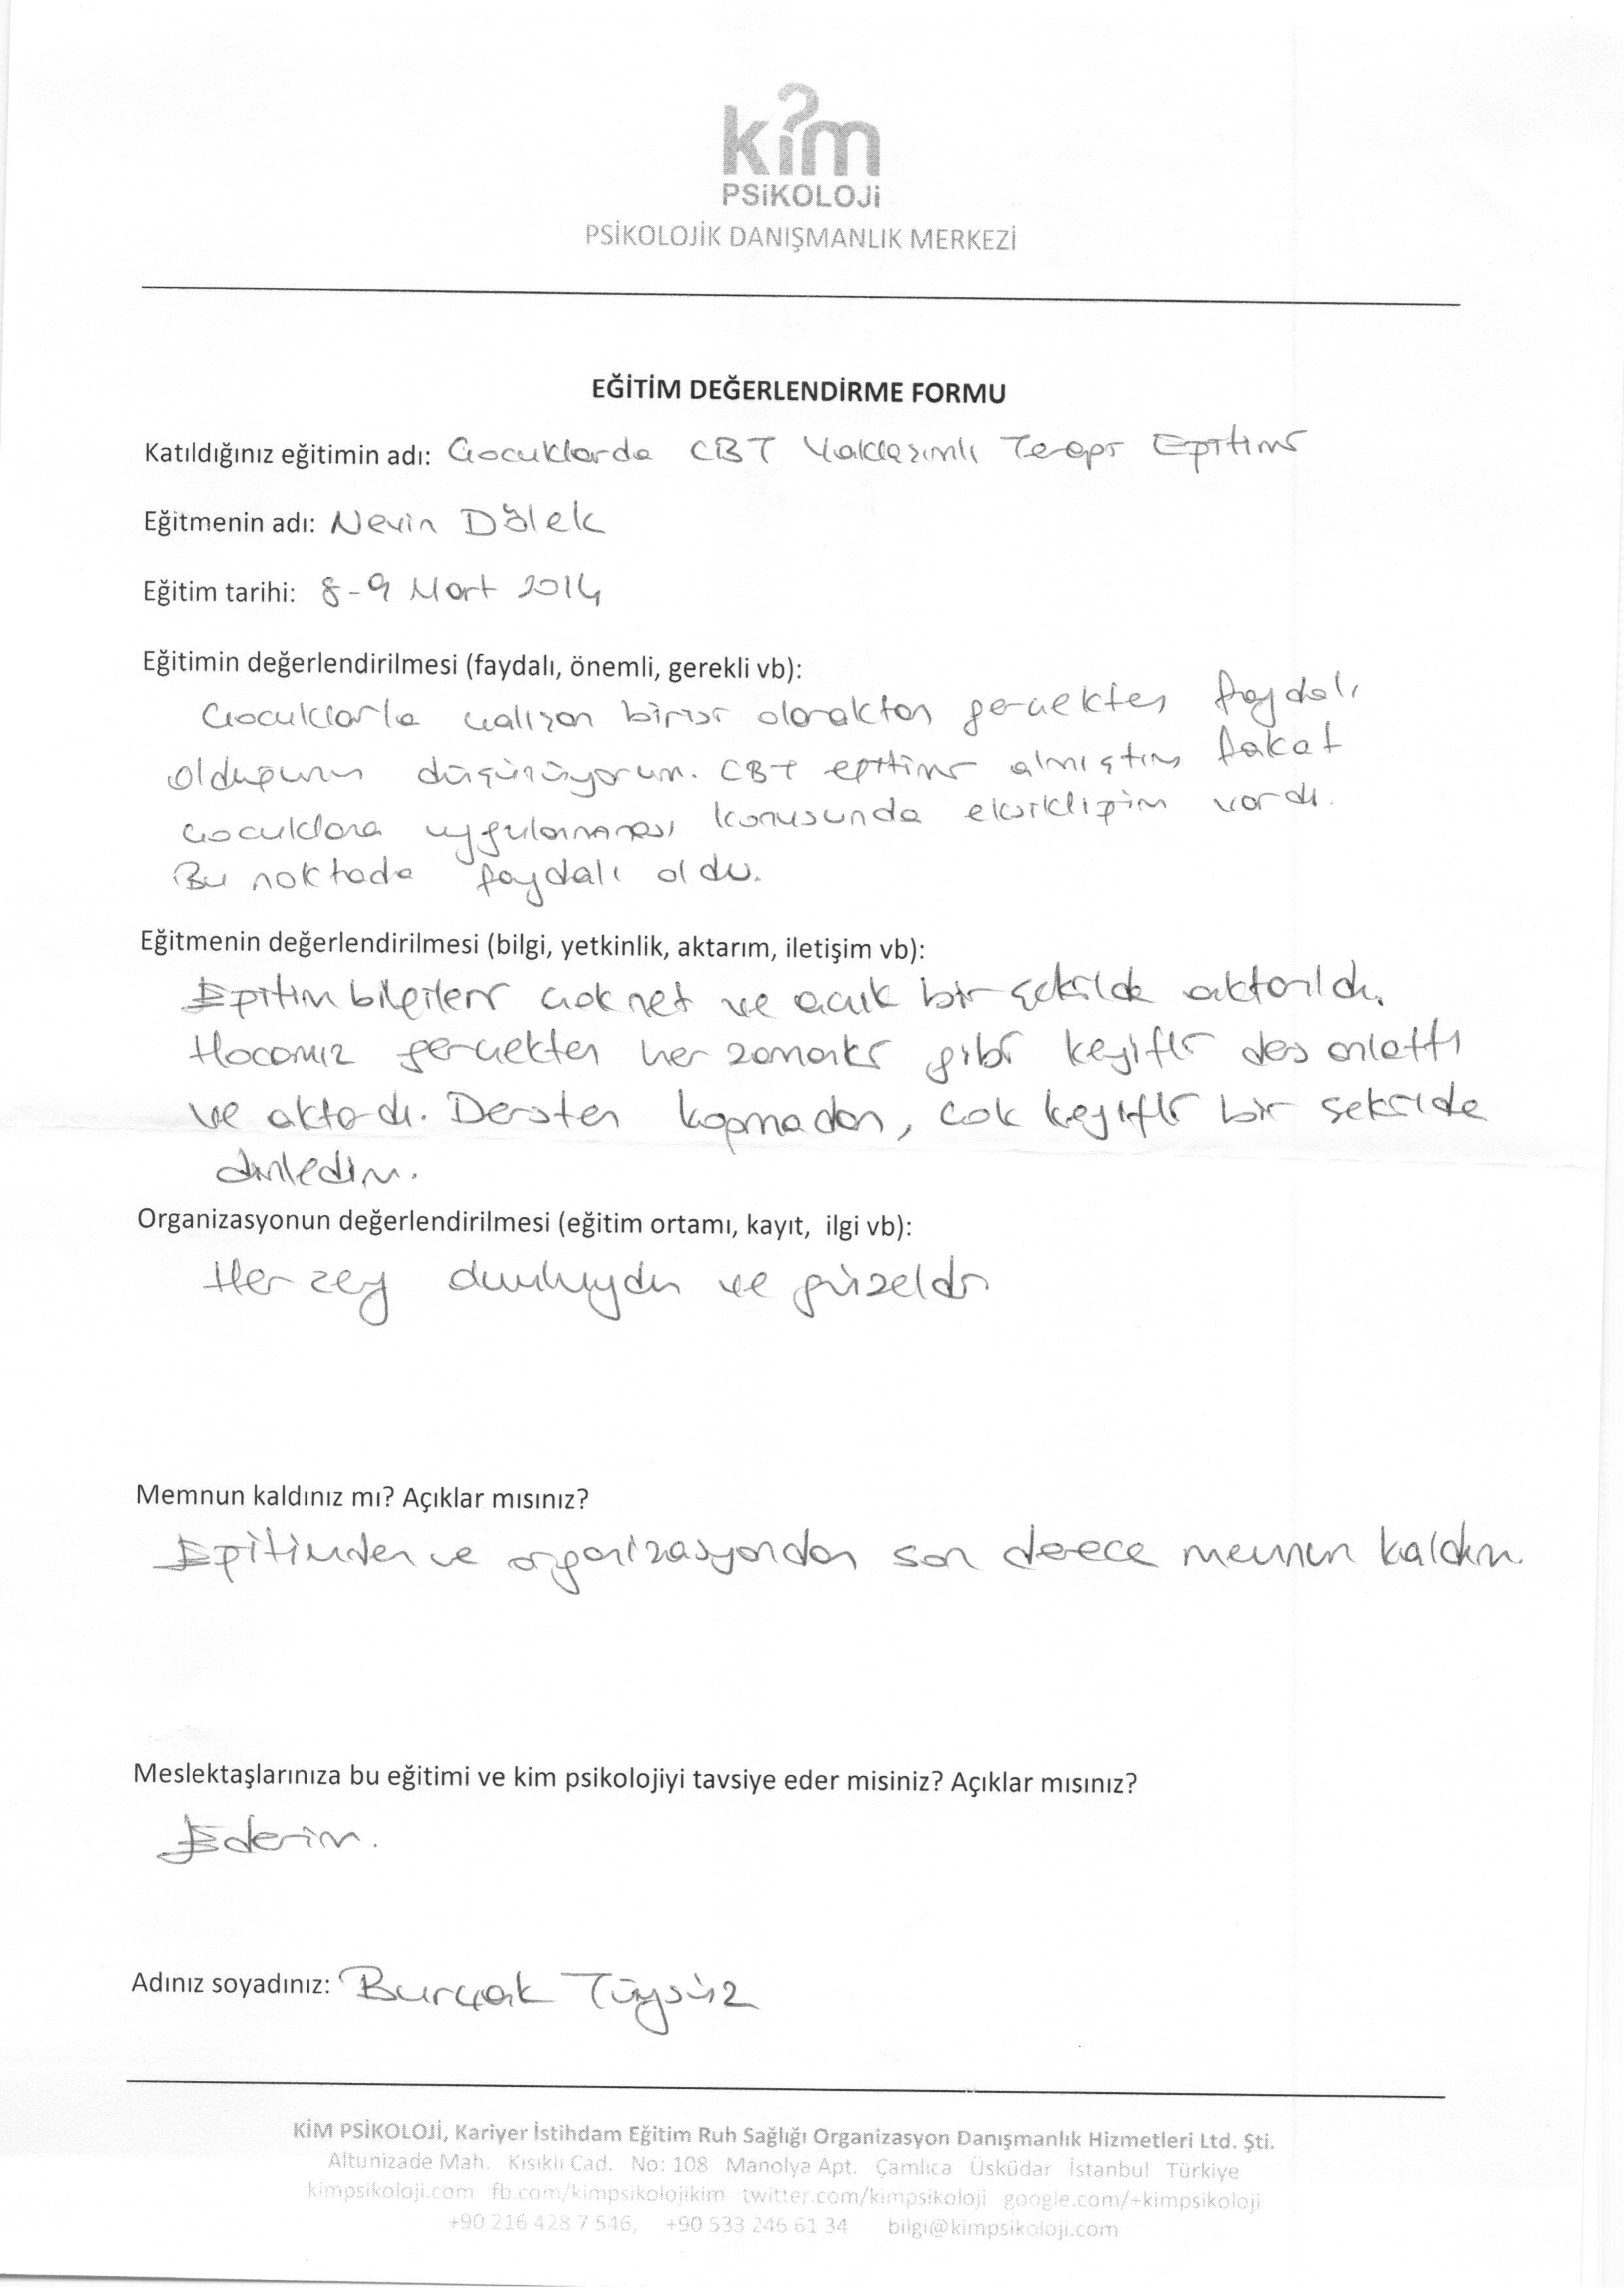 kim
PSiKOLOJi
PSİKOLOJİK DANIŞMANLIK MERKEZİ
EĞİTİM DEĞERLENDİRME FORMU
Katıldığınız eğitimin adı: Çocuklarda CBT Yaklaşımlı Terapi Eğitimi
Eğitmenin adı: Nevin Dölek
Eğitim tarihi: 8-9 Mart 2014
Eğitimin değerlendirilmesi (faydalı, önemli, gerekli vb):
Çocuklarla çalışan birisi olaraktan gerçekten faydalı
olduğunu düşünüyorum. CBT eğitimi almıştım fakat
çocuklara uygulanması konusunda eksikliğim vardı.
Bu noktada faydalı oldu.
Eğitmenin değerlendirilmesi (bilgi, yetkinlik, aktarım, iletişim vb):
Eğitim bilgileri çok net ve açık bir şekilde aktarıldı.
Hocamız gerçekten her zamanki gibi keyifli ders anlattı
ve aktardı. Dersten kopmadan, çok keyifli bir şekilde
dinledim.
Organizasyonun değerlendirilmesi (eğitim ortamı, kayıt, ilgi vb):
Her şey ve güzeldi
Memnun kaldınız mı? Açıklar mısınız?
Eğitimden ve organizasyondan son derece memnun kaldım.
Meslektaşlarınıza bu eğitimi ve kim psikolojiyi tavsiye eder misiniz? Açıklar mısınız?
Ederim.
Adınız soyadınız: Burçak Tüysüz
KİM PSİKOLOJİ, Kariyer İstihdam Eğitim Ruh Sağlığı Organizasyon Danışmanlık Hizmetleri Ltd. Şti.
Altunizade Mah. Kısıklı Cad. No: 108 Manolya Apt. Çamlıca Üsküdar İstanbul Türkiye
kimpsikoloji.com fb.com/kimpsikolojikim twitter.com/kimpsikoloji google.com/+kimpsikoloji
+90 216 428 7 546, +90 533 246 61 34 bilgi@kimpsikoloji.com